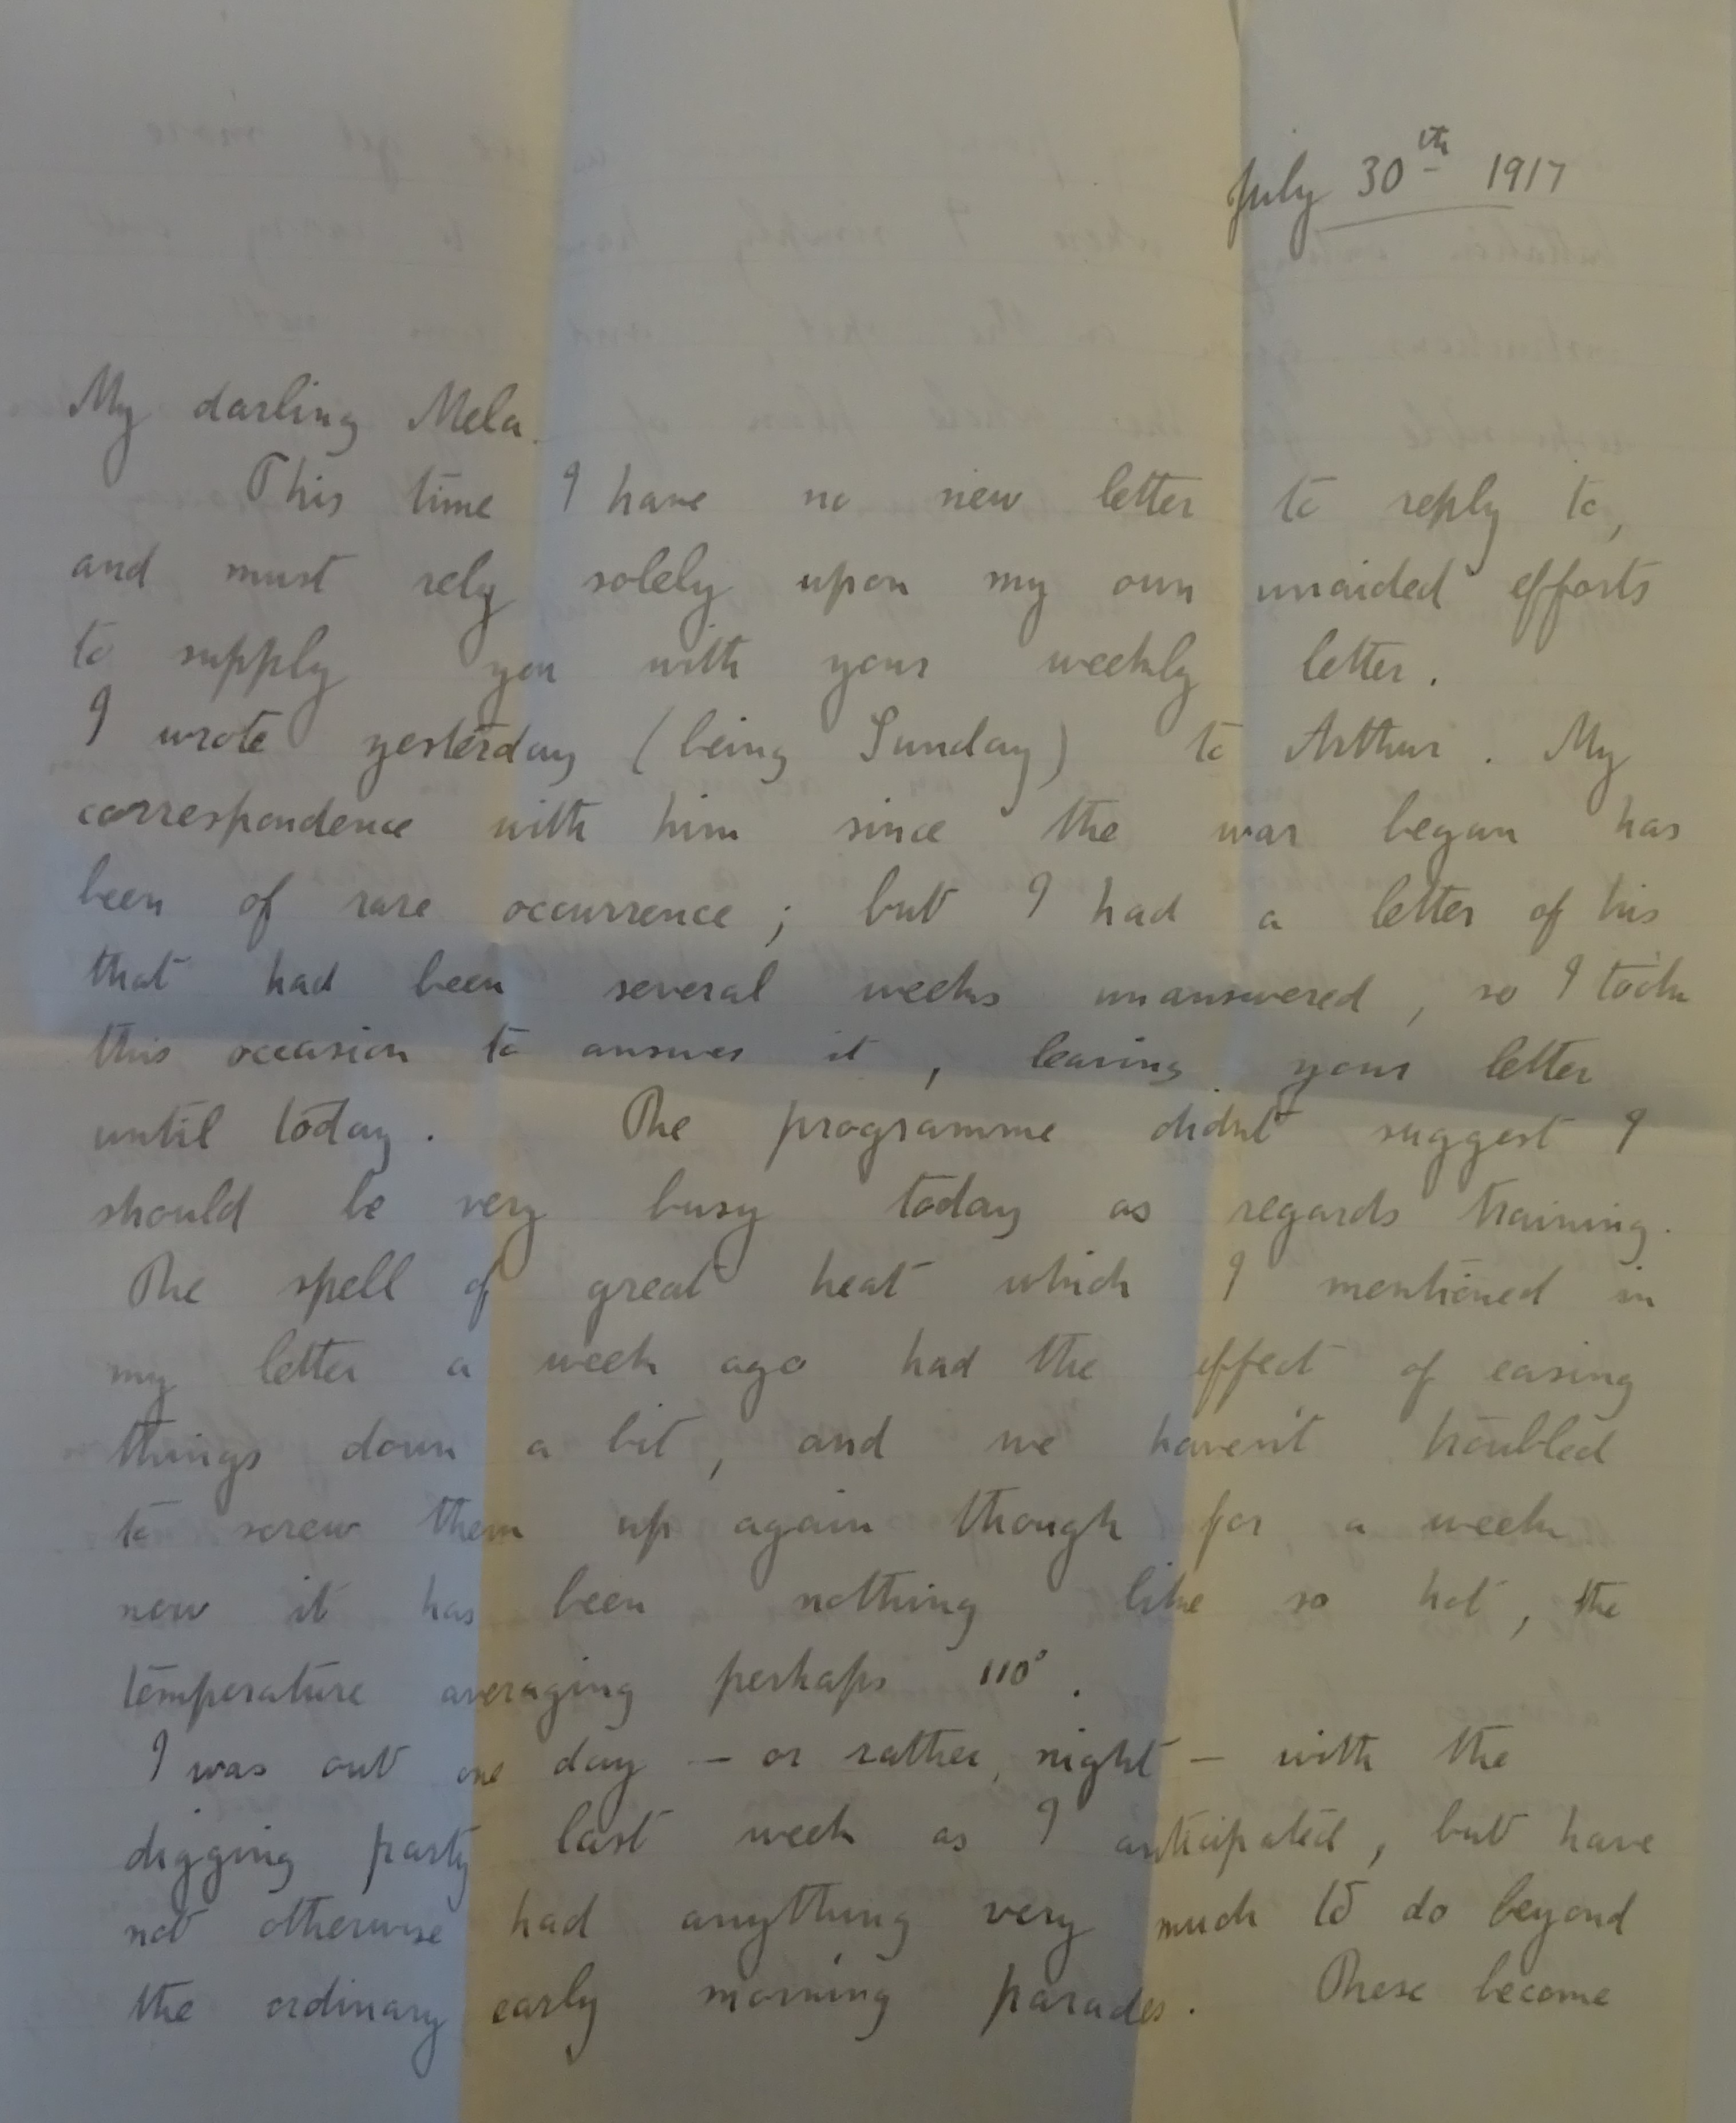 July 30th 1917
My darling Mela.
This time I have no new letter to reply to,
and must rely solely upon my own unaided efforts
to supply you with your weekly letter.
I wrote yesterday (being Sunday) to Arthur. My
correspondence with him since the war began has
been of rare occurrence; but I had a letter of his
that had been several weeks unanswered, so I took
this occasion to answer it, leaving your letter
until today. The programme didn't suggest I
should be very busy today as regards training.
The spell of great heat which I mentioned in
my letter a week ago had the effect of easing
things down a bit, and we haven't troubled
to screw them up again though for a week
now it has been nothing like so hot, the
temperature averaging perhaps 110°.
I was out one day - or rather, night - with the
digging party last week as I anticipated, but have
not otherwise had anything very much to do beyond
the ordinary early morning parades. These become